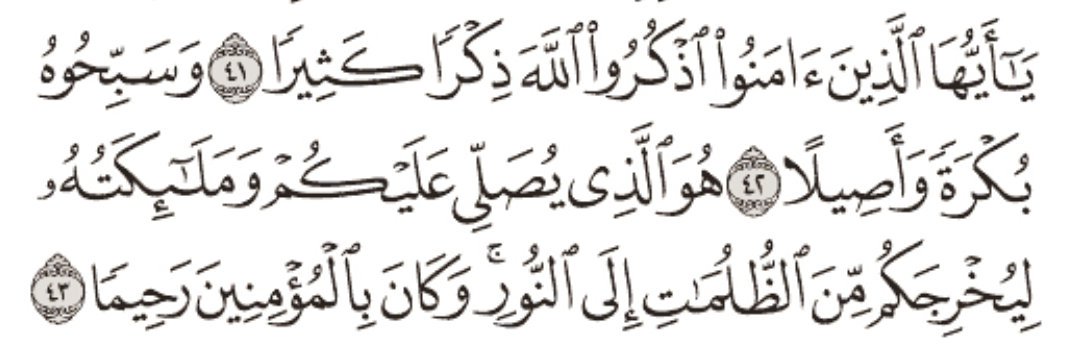 يَـٰٓأَيُّهَا ٱلَّذِينَ ءَامَنُوا۟ ٱذْكُرُوا۟ ٱللَّهَ ذِكْرًا كَثِيرًا ٤١ وَسَبِّحُوهُ
بُكْرَةً وَأَصِيلًا ٤٢ هُوَ ٱلَّذِى يُصَلِّى عَلَيْكُمْ وَمَلَـٰٓئِكَتُهُۥ
لِيُخْرِجَكُم مِّنَ ٱلظُّلُمَـٰتِ إِلَى ٱلنُّورِ ۚ وَكَانَ بِٱلْمُؤْمِنِينَ رَحِيمًا ٤٣